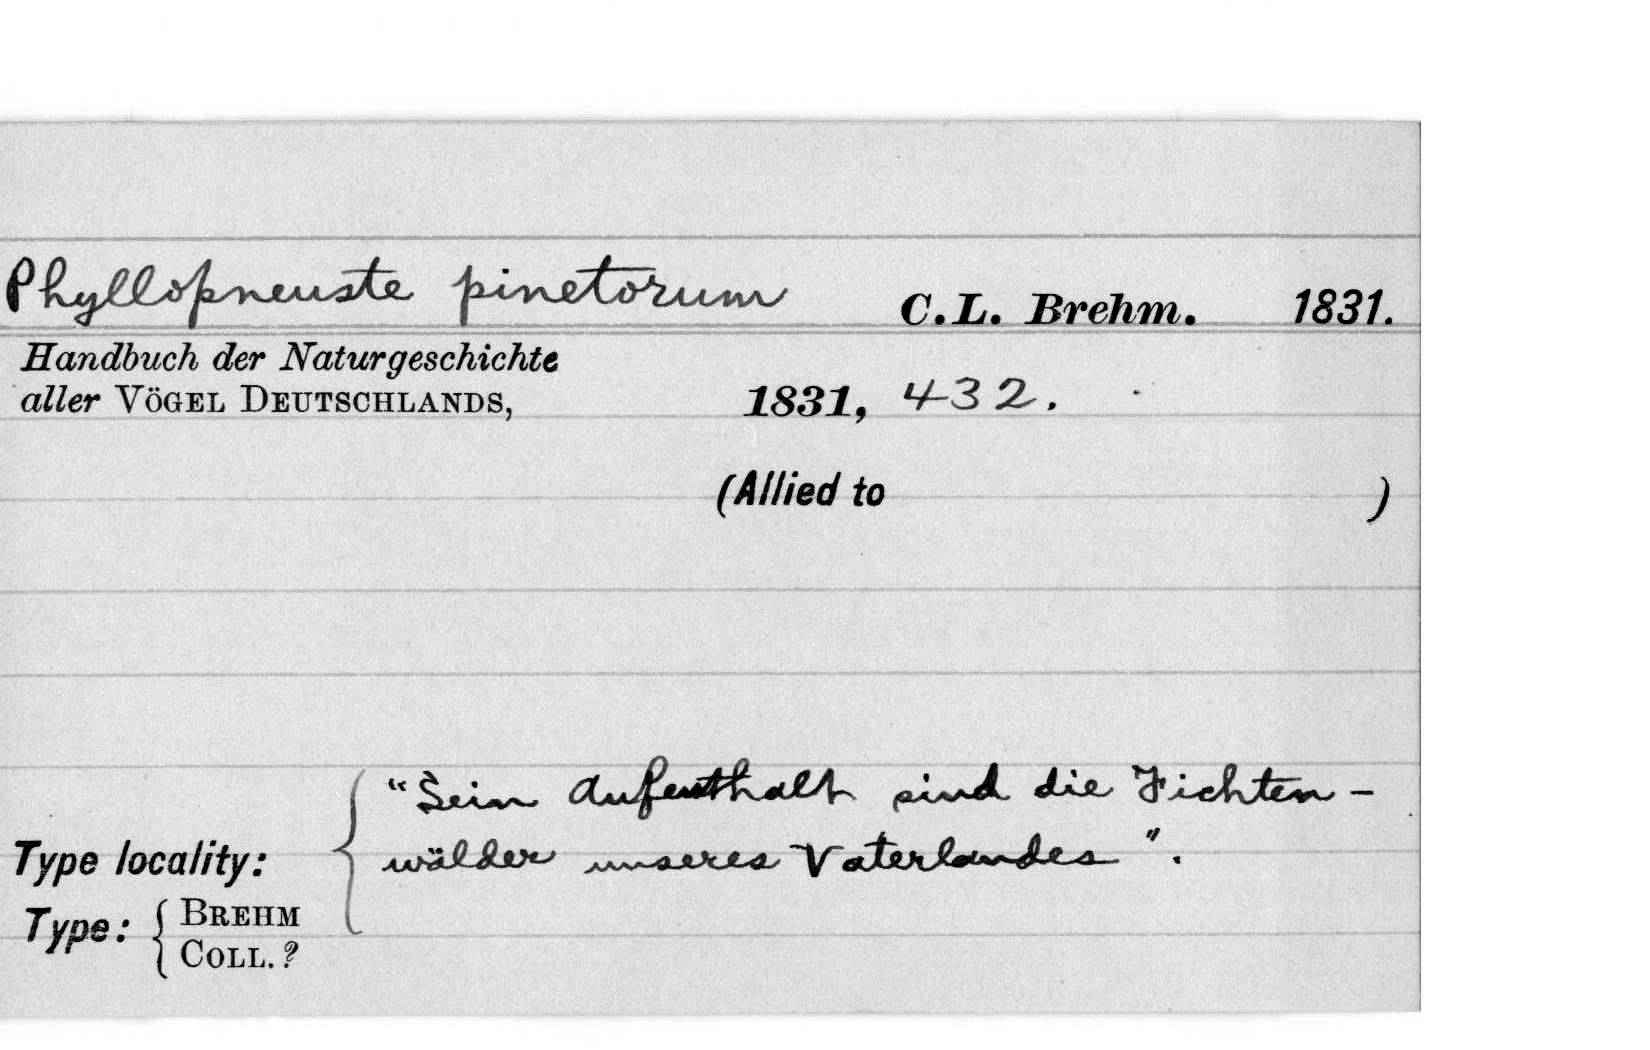 Phyllopneuste pinetorum C.L. Brehm. 1831.
Handbuch der Naturgeschichte
aller VÖGEL DEUTSCHLANDS, 1831, 432.
(Allied to )
"Sein Aufenthalt sind die Fichten-
Type locality: { wälder unseres Vaterlandes".
Type: { BREHM
COLL. ?